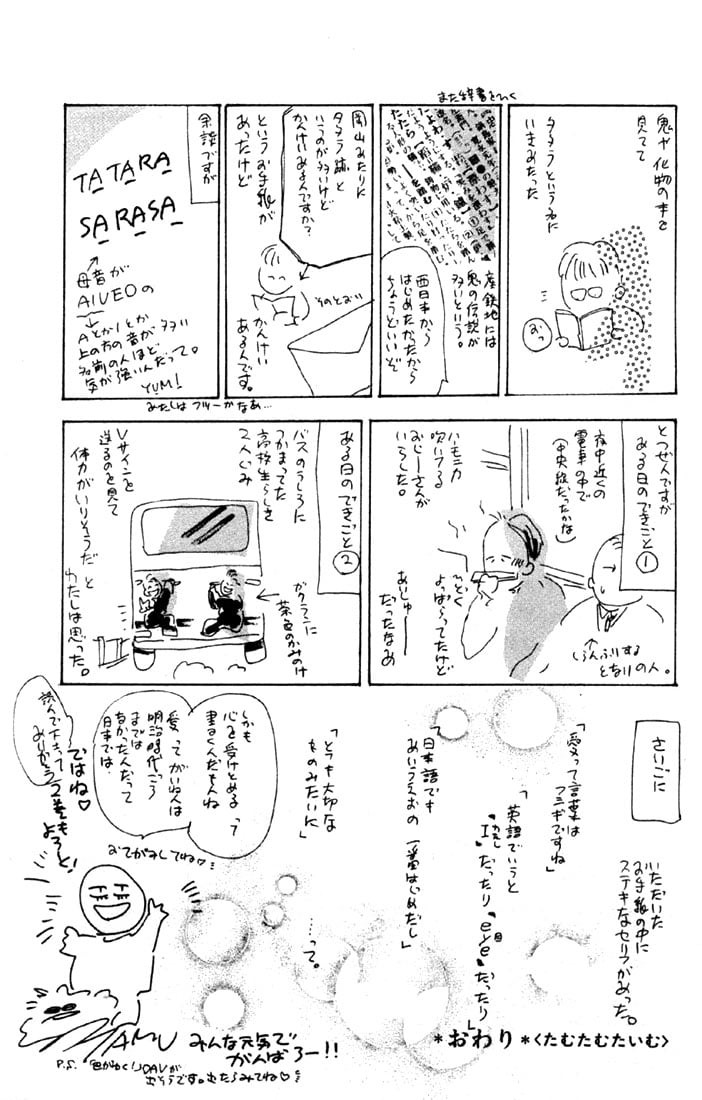 鬼や化物の本を
見てて
タタラという名に
いきあたった
おっ
また辞書をひく
産鉄地には
鬼の伝説が
多いという。
西日本から
はじめたかったから
ちょうどいいぞ
岡山あたりに
タタラ跡と
いうのが多いけど
かんけいあるんですか？
というお手紙が
あったけど
そのとおり
かんけい
あるんです。
余談ですが
TATARA
SARASA
母音が
AIUEOの
AとかIとか
上の方の音が多い
名前の人ほど
気が強いんだって。
YUMI
とつぜんですが
ある日のできごと①
夜中近くの
電車の中で
(中央線だったかな)
ハモニカ
吹いてる
おじーさんが
いらした。
ひどく
よっぱらってたけど
あいしゅー
だったなあ
しらんふりする
となりの人。
ある日のできごと②
バスのうしろに
つかまってた
高校生らしき
2人ぐみ
ガクランに
茶色のかみのけ
Vサインを
送るのを見て
体力がいりそうだ と
わたしは思った。
さいごに
いただいた
お手紙の中に
ステキなセリフがあった。
「愛って言葉は
フシギですね」
「英語でいうと
"I"だったり "eye"だったり」
私
目
「日本語でも
あいうえおの 一番はじめだし」
「とても大切な
ものみたいに」
……って。
しかも
心を受けとめる って
書くんだもんね
愛 って がいねんは
明治時代ごろ
までは
なかったんだって
日本では。
おてがみしてね♡
読んで下さって
ありがとう
ではね♡
2巻もよろしく！
みんな元気で
がんばろー!!
*おわり*<たむたむたいむ>
TAMU